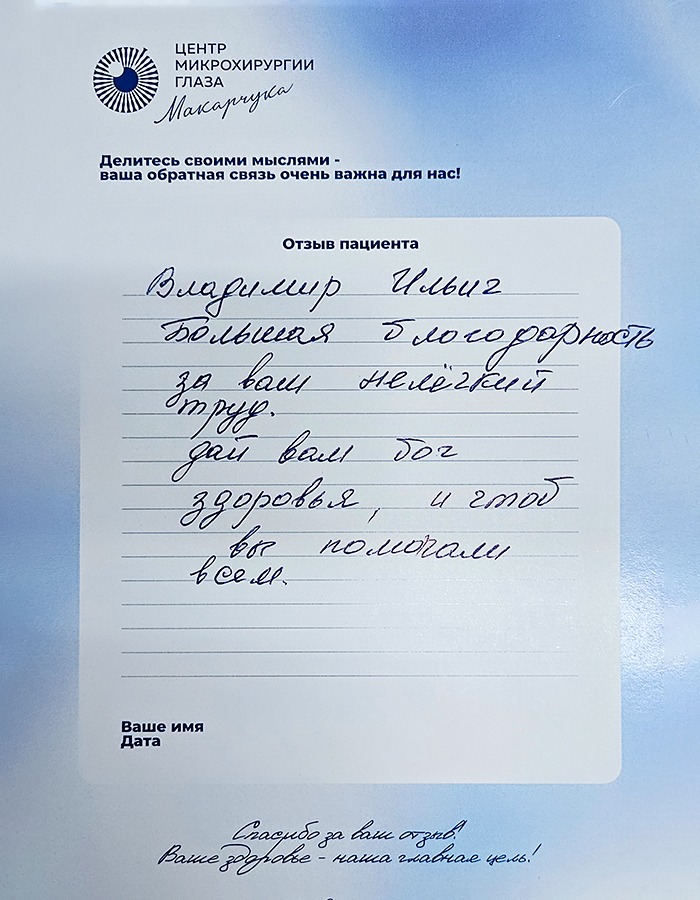 ЦЕНТР
МИКРОХИРУРГИИ
ГЛАЗА
Макарчука
Делитесь своими мыслями -
ваша обратная связь очень важна для нас!
Отзыв пациента
Владимир Ильич
Большая благодарность
за вам нелёгкий
труд.
дай вам бог
здоровья, и чтоб
вы помогали
всем.
Ваше имя
Дата
Спасибо за ваш отзыв!
Ваше здоровье - наша главная цель!